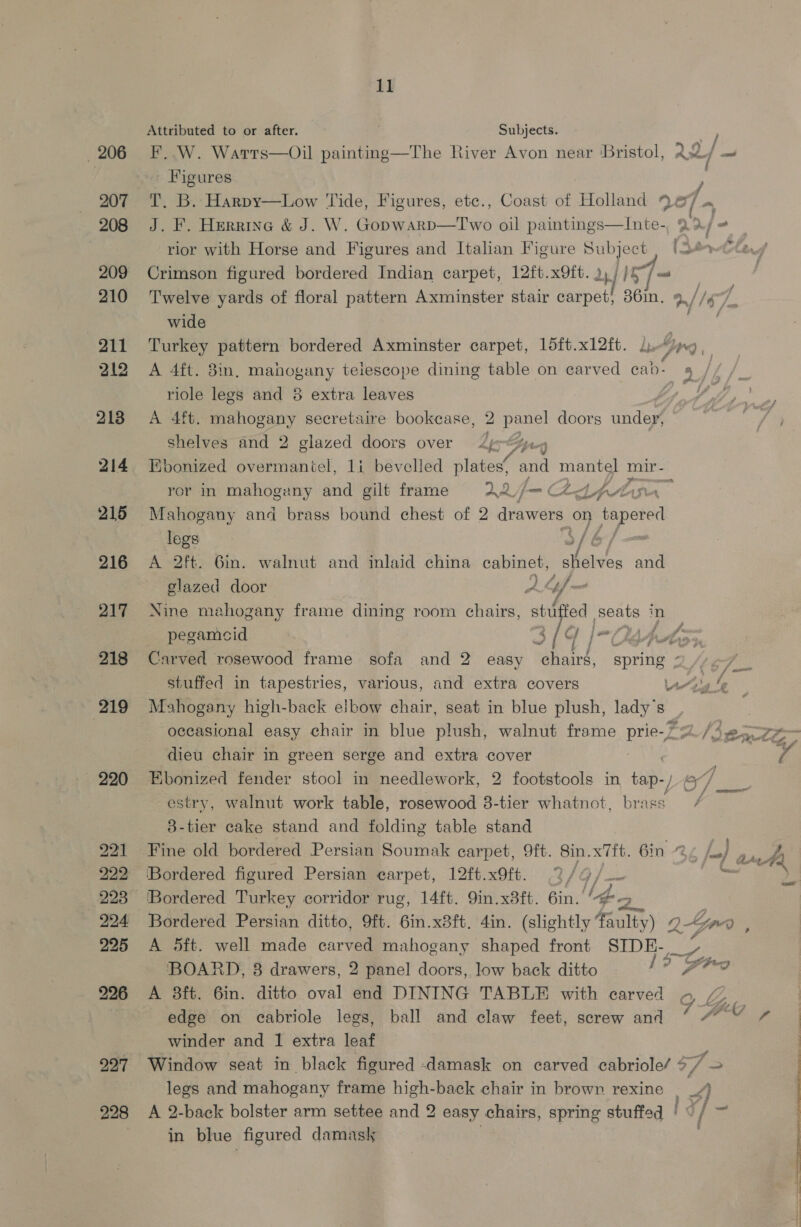 11
Attributed to or after. Subjects.
206 F. W. Watts—Oil painting—The River Avon near Bristol, 22/-
Figures
207 T. B. Hardy—Low Tide, Figures, etc., Coast of Holland
208 J. F. Herring & J. W. Godward—Two oil paintings—Inte-
rior with Horse and Figures and Italian Figure Subject
209 Crimson figured bordered Indian carpet, 12ft.x9ft.
210 Twelve yards of floral pattern Axminster stair carpet, 36in.
wide
211 Turkey pattern bordered Axminster carpet, 15ft.x12ft.
212 A 4ft. 3in. mahogany telescope dining table on carved cab-
riole legs and 3 extra leaves
213 A 4ft. mahogany secretaire bookcase, 2 panel doors under,
shelves and 2 glazed doors over
214 Ebonized overmantel, 11 bevelled plates, and mantel mir-
ror in mahogany and gilt frame 22/-
215 Mahogany and brass bound chest of 2 drawers on tapered
legs 3/6/-
216 A 2ft. 6in. walnut and inlaid china cabinet, shelves and
glazed door
217 Nine mahogany frame dining room chairs, stuffed seats in
pegamoid
218 Carved rosewood frame sofa and 2 easy chairs, spring
stuffed in tapestries, various, and extra covers
219 Mahogany high-back elbow chair, seat in blue plush, lady's
occasional easy chair in blue plush, walnut frame prie-
dieu chair in green serge and extra cover
220 Ebonized fender stool in needlework, 2 footstools in tap-
estry, walnut work table, rosewood 3-tier whatnot, brass
3-tier cake stand and folding table stand
221 Fine old bordered Persian Soumak carpet, 9ft. 8in.x7ft. 6in
222 Bordered figured Persian carpet, 12ft.x9ft.
223 Bordered Turkey corridor rug, 14ft. 9in.x3ft. 6in.
224 Bordered Persian ditto, 9ft. 6in.x3ft. 4in. (slightly faulty)
225 A 5ft. well made carved mahogany shaped front SIDE-
BOARD, 3 drawers, 2 panel doors, low back ditto
226 A 3ft. 6in. ditto oval end DINING TABLE with carved
edge on cabriole legs, ball and claw feet, screw and
winder and 1 extra leaf
227 Window seat in black figured damask on carved cabriole
legs and mahogany frame high-back chair in brown rexine
228 A 2-back bolster arm settee and 2 easy chairs, spring stuffed
in blue figured damask